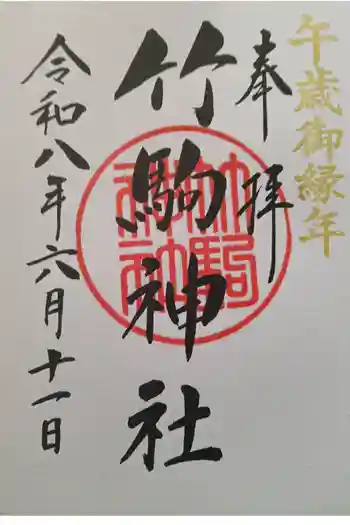 午歳御縁年
奉拝
竹駒神社
竹駒神社
令和八年六月十一日